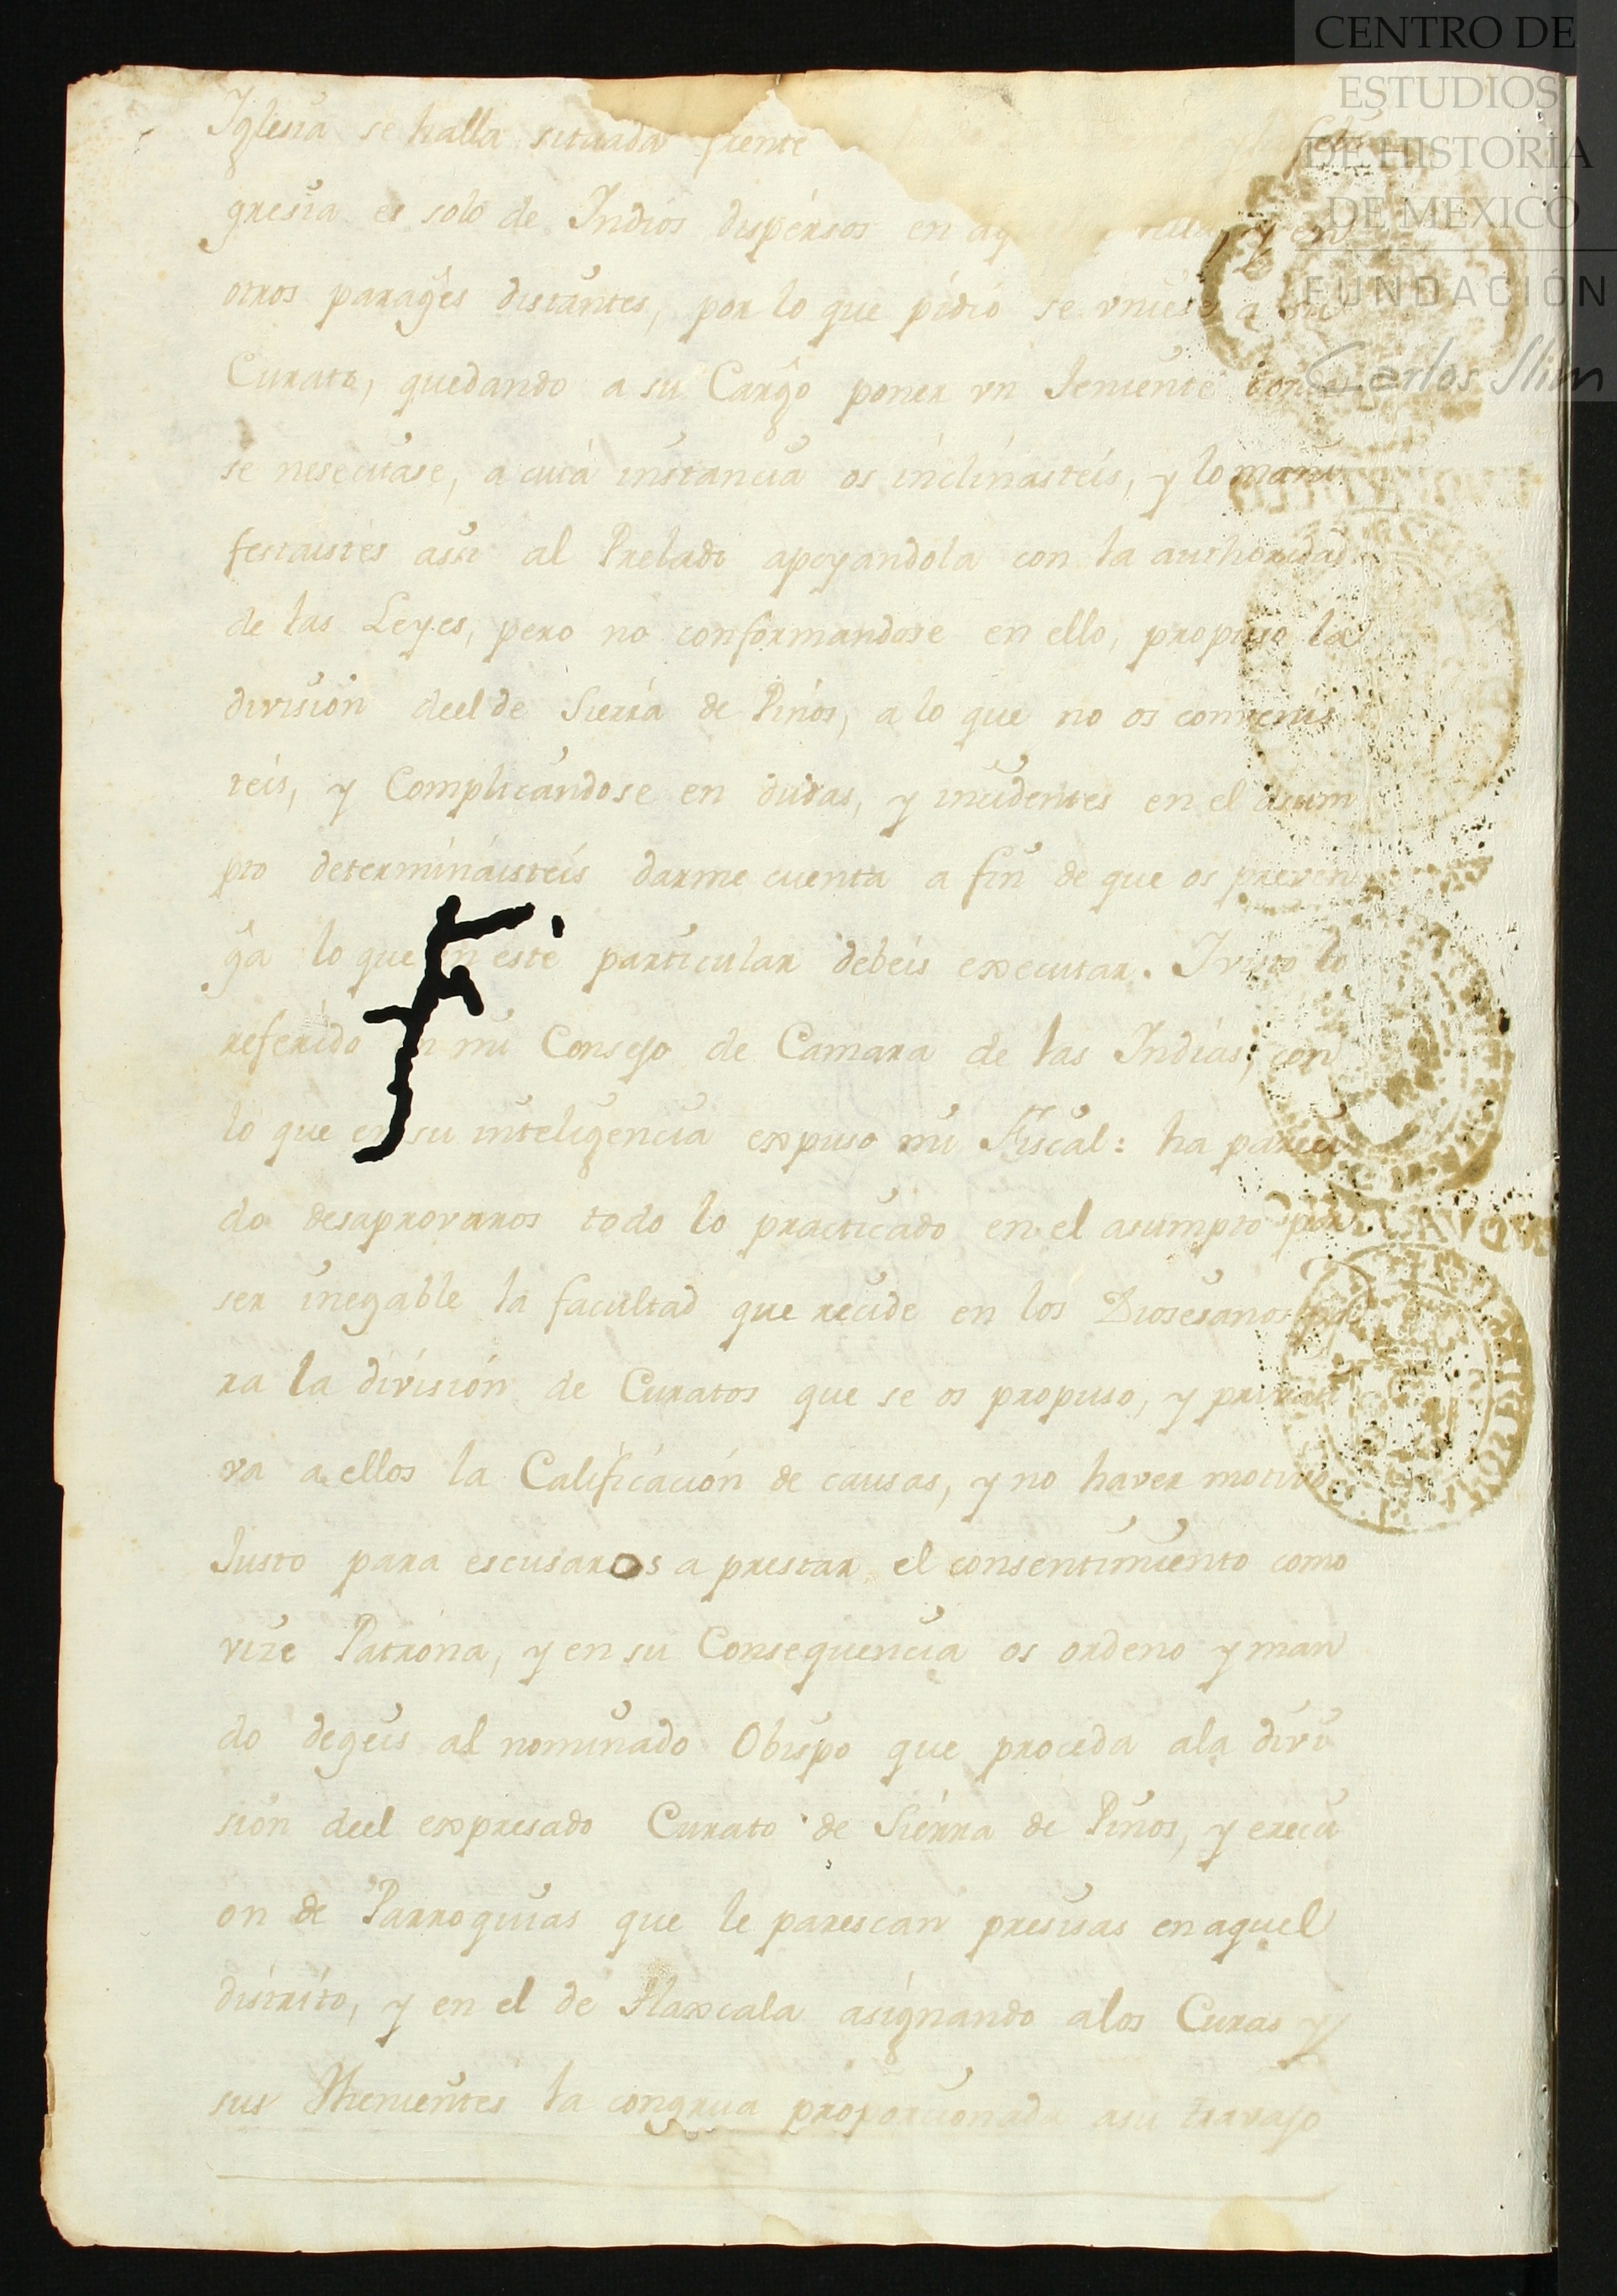 CENTRO DE
ESTUDIOS
DE HISTORIA
DE MEXICO
FUNDACIÓN
Carlos Slim
Iglesia se halla situada frente
gresia es solo de Indios dispersos en
otros parages distantes, por lo que pidió se vniese a su
Curato, quedando a su Cargo poner vn Teniente
se nesecitase, a cuia instancia os inclinasteis, y lo mani
festaisteis assi al Prelado apoyandola con la authoridad
de las Leyes, pero no conformandose en ello, propuso la
division deel de Sierra de Pinos, a lo que no os convenis
teis, y Complicandose en dudas, y incidentes en el asum
pto determinaisteis darme cuenta a fin de que os preven
ga lo que en este particular debeis executar. I visto lo
referido en mi Consejo de Camara de las Indias, con
lo que en su inteligencia expuso mi Fiscal: ha pareci
do desaprovaros todo lo practicado en el asumpto por
ser inegable la facultad que recide en los Diosesanos pa
ra la division de Curatos que se os propuso, y privati
va a ellos la Calificacion de causas, y no haver motivo
Justo para escusaros a prestar el consentimiento como
vize Patrona, y en su Consequencia os ordeno y man
do degeis al nominado Obispo que proceda ala divi
sion deel expresado Curato de Sierra de Pinos, y erecci
on de Parroquias que le parescan presisas en aquel
distrito, y en el de Tlaxcala asignando alos Curas y
sus Thenientes la congrua proporcionada asu travajo